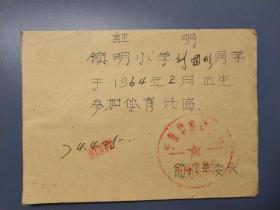 証明
镇明小学刘国明同学
于1964年2月出生.
参加体育比赛.
74.4.25.
镇小革委会